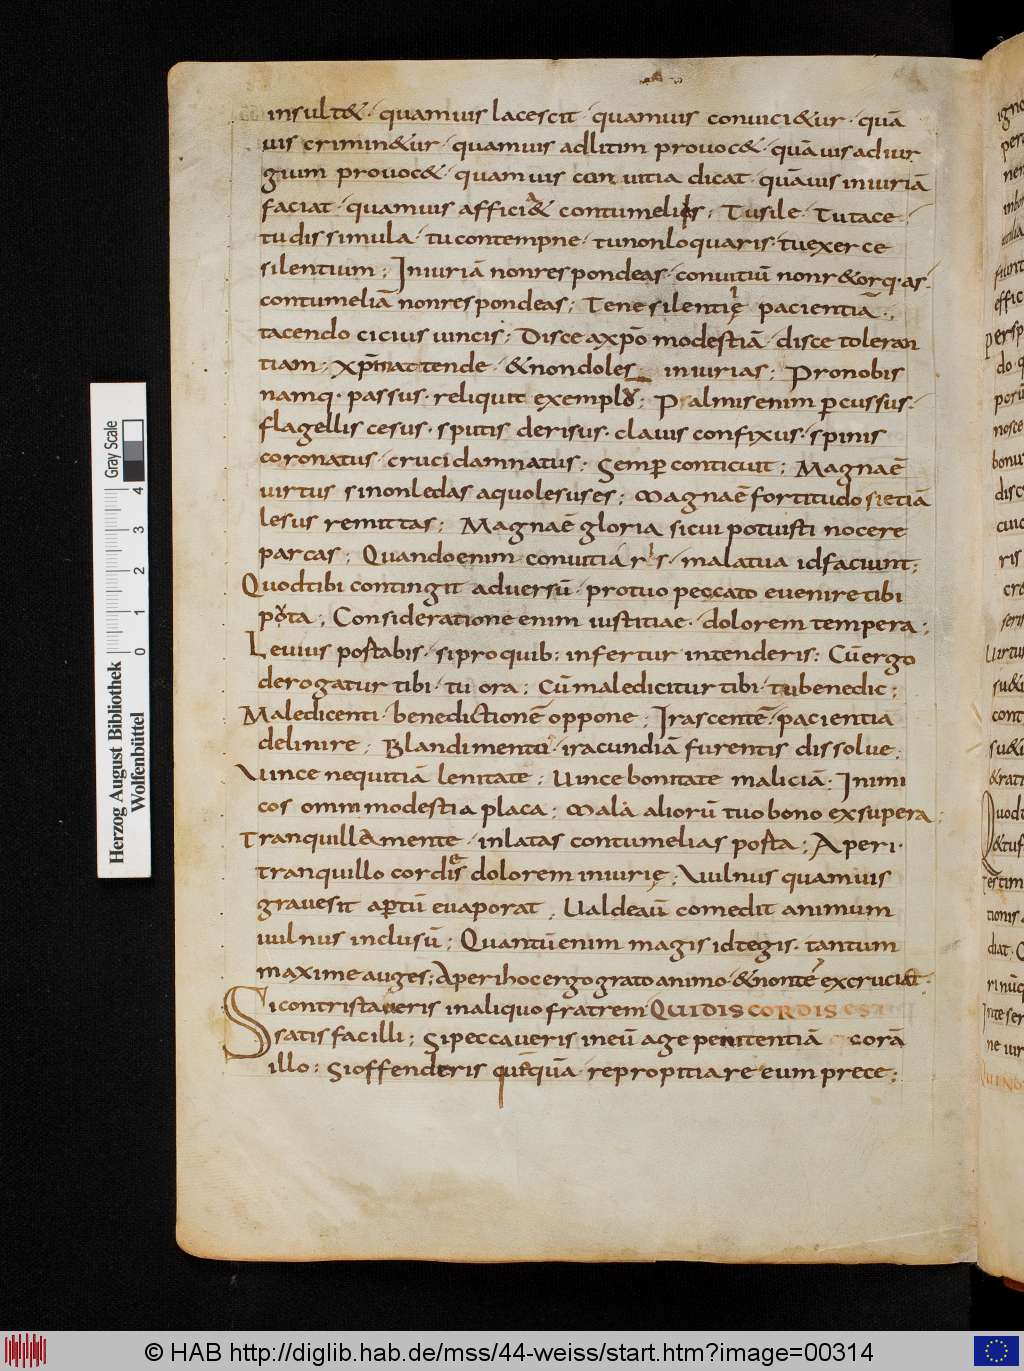 insult& · quamuis lacescit · quamuis conuici&ur · quā
uis crimin&ur · quamuis adlitim prouoc& · quāuis adiur
gium prouoc& · quamuis conuitia dicat · quāuis iniuriā
faciat · quamuis affici& contumeliis ; Tu sile · Tu tace ;
tu dissimula · tu contempne · tu non loquaris · tu exerce
silentium ; Iniuriā non respondeas · conuitiū non r&orq·as ·
contumeliā non respondeas ; Tene silentię pacientiā ·,
tacendo cicius uincis ; Disce a xp̄o modestiā · disce toleran
tiam · xp̄m attende · & non doles iniurias ; Pro nobis
namq· passus · reliquit exemplū ; Psalmis enim percussus ·
flagellis cesus · sputis derisus · clauis confixus · spinis
coronatus · cruci damnatus · semper conticuit ; Magna ē
uirtus si non ledas a quo lesus es ; Magna ē fortitudo si etiā
lesus remittas ; Magna ē gloria si cui potuisti nocere
parcas ; Quando enim conuitiaris · mala tua id faciunt ;
Quod tibi contingit aduersū · pro tuo peccato euenire tibi
pota ; Consideratione enim iustitiae · dolorem tempera ;
Leuius portabis · si pro quib; infertur intenderis ; Cū ergo
derogatur tibi · tu ora ; Cū maledicitur tibi · tu benedic ;
Maledicenti · benedictionē oppone ; Irascentē · pacientia
delinire ; Blandimento · iracundiā furentis dissolue ;
Vince nequitiā lenitate ; Uince bonitate maliciā ; Inimi
cos omni modestia placa ; Mala aliorū tuo bono exsupera ;
Tranquilla mente · inlatas contumelias porta ; Aperi ·
tranquillo cordis dolorem iniurię ; Vulnus quamuis
graue sit apertū euaporat ; Ualde aū comedit animum
uulnus inclusū ; Quantū enim magis id tegis · tantum
maxime auges ; Aperi hoc ergo grato animo · & non te excruciat ·
Si contristaueris in aliquo fratrem QUIDIS CORDIS EST
satisfac illi ; Si peccaueris in eū age penitentiā corā
illo ; Si offenderis quēquā · repropitiare eum prece ;
ignos
Herzog August Bibliothek
Wolfenbüttel
Gray Scale
0 1 2 3 4
© HAB http://diglib.hab.de/mss/44-weiss/start.htm?image=00314